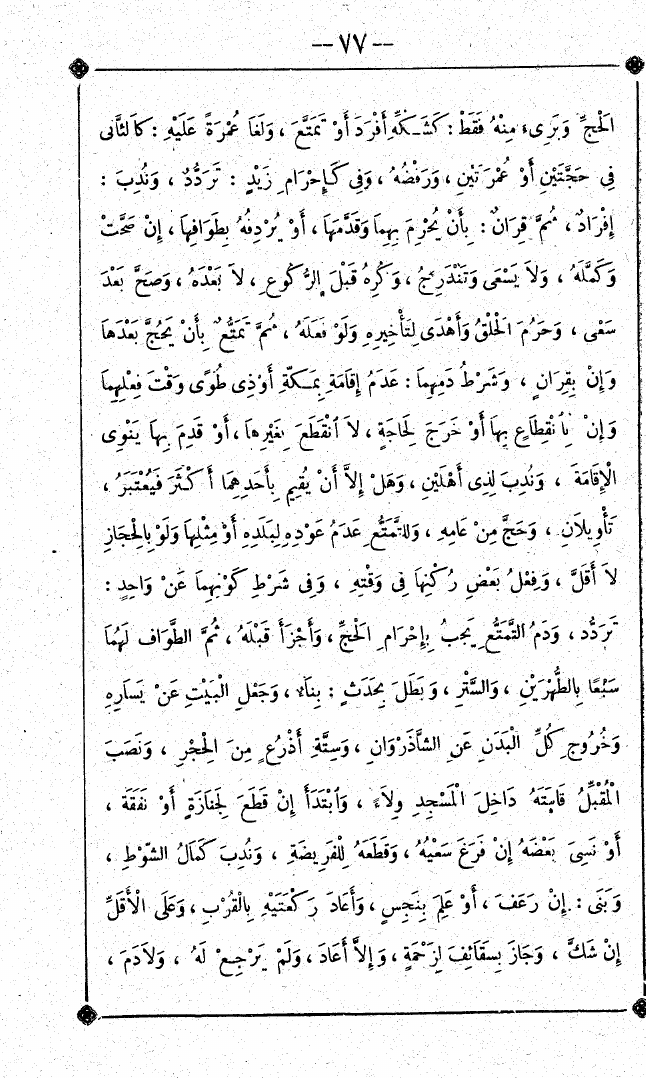 -- ٧٧ --
الْحَجِّ وَبَرِىءَ مِنْهُ فَقَطْ : كَشَكِّهِ أَفْرَدَ أَوْ تَمَتَّعَ ، وَلَغَا عُمْرَةً عَلَيْهِ : كَالثَّانِى
فِى حَجَّتَيْنِ أَوْ عُمْرَتَيْنِ ، وَرَفْضُهُ ، وَفِى كَإِحْرَامِ زَيْدٍ : تَرَدُّدٌ ، وَنُدِبَ :
إِفْرَادٌ ، ثُمَّ قِرَانٌ : بِأَنْ يُحْرِمَ بِهِمَا وَقَدَّمَهَا ، أَوْ يُرْدِفُهُ بِطَوَافِهَا ، إِنْ صَحَّتْ
وَكَمَّلَهُ ، وَلاَ يَسْعَى وَتَنْدَرِجُ ، وَكُرِهَ قَبْلَ الرُّكُوعِ ، لاَ بَعْدَهُ ، وَصَحَّ بَعْدَ
سَعْىٍ ، وَحَرُمَ الْحَلْقُ وَأَهْدَى لِتَأْخِيرِهِ وَلَوْ فَعَلَهُ ، ثُمَّ تَمَتُّعٌ بِأَنْ يَحُجَّ بَعْدَهَا
وَإِنْ بِقِرَانٍ ، وَشَرْطُ دَمِهِمَا : عَدَمُ إِقَامَةِ بِمَكَّةَ أَوْ ذِى طُوًى وَقْتَ فِعْلِهِمَا
وَإِنْ بِانْقِطَاعٍ بِهَا أَوْ خَرَجَ لِحَاجَةٍ ، لاَ انْقَطَعَ بِغَيْرِهَا ، أَوْ قَدِمَ بِهَا يَنْوِى
الْإِقَامَةَ ، وَنُدِبَ لِذِى أَهْلَيْنِ ، وَهَلْ إِلاَّ أَنْ يُقِيمَ بِأَحَدِهِمَا أَكْثَرَ فَيُعْتَبَرُ ،
تَأْوِيلاَنِ ، وَحَجَّ مِنْ عَامِهِ ، وَلِلتَّمَتُّعِ عَدَمُ عَوْدِهِ لِبَلَدِهِ أَوْ مِثْلِهَا وَلَوْ بِالْحِجَازِ
لاَ أَقَلَّ ، وَفِعْلُ بَعْضِ رُكْنِهَا فِى وَقْتِهِ ، وَفِى شَرْطِ كَوْنِهِمَا عَنْ وَاحِدٍ :
تَرَدُّدٌ ، وَدَمُ التَّمَتُّعِ يَجِبُ بِإِحْرَامِ الْحَجِّ ، وَأَجْزَأَ قَبْلَهُ ، ثُمَّ الطَّوَافُ لَهُمَا
سَبْعًا بِالطُّهْرَيْنِ ، وَالسَّتْرِ ، وَبَطَلَ بِحَدَثٍ : بِنَاءٌ ، وَجَعْلِ الْبَيْتِ عَنْ يَسَارِهِ
وَخُرُوجِ كُلِّ الْبَدَنِ عَنِ الشَّاذَرْوَانِ ، وَسِتَّةِ أَذْرُعٍ مِنَ الْحِجْرِ ، وَنَصَبَ
الْمُقَبِّلُ قَامَتَهُ دَاخِلَ الْمَسْجِدِ وِلاَءً ، وَابْتَدَأَ إِنْ قَطَعَ لِجَنَازَةٍ أَوْ نَفَقَةَ ،
أَوْ نَسِىَ بَعْضَهُ إِنْ فَرَغَ سَعْيُهُ ، وَقَطَعَهُ لِلْفَرِيضَةِ ، وَنُدِبَ كَمَالُ الشَّوْطِ ،
وَبَنَى : إِنْ رَعَفَ ، أَوْ عَلِمَ بِنَجِسٍ ، وَأَعَادَ رَكْعَتَيْهِ بِالْقُرْبِ ، وَعَلَى الْأَقَلِّ
إِنْ شَكَّ ، وَجَازَ بِسَقَائِفَ لِزَحْمَةٍ ، وَإِلاَّ أَعَادَ ، وَلَمْ يَرْجِعْ لَهُ ، وَلاَ دَمَ ،